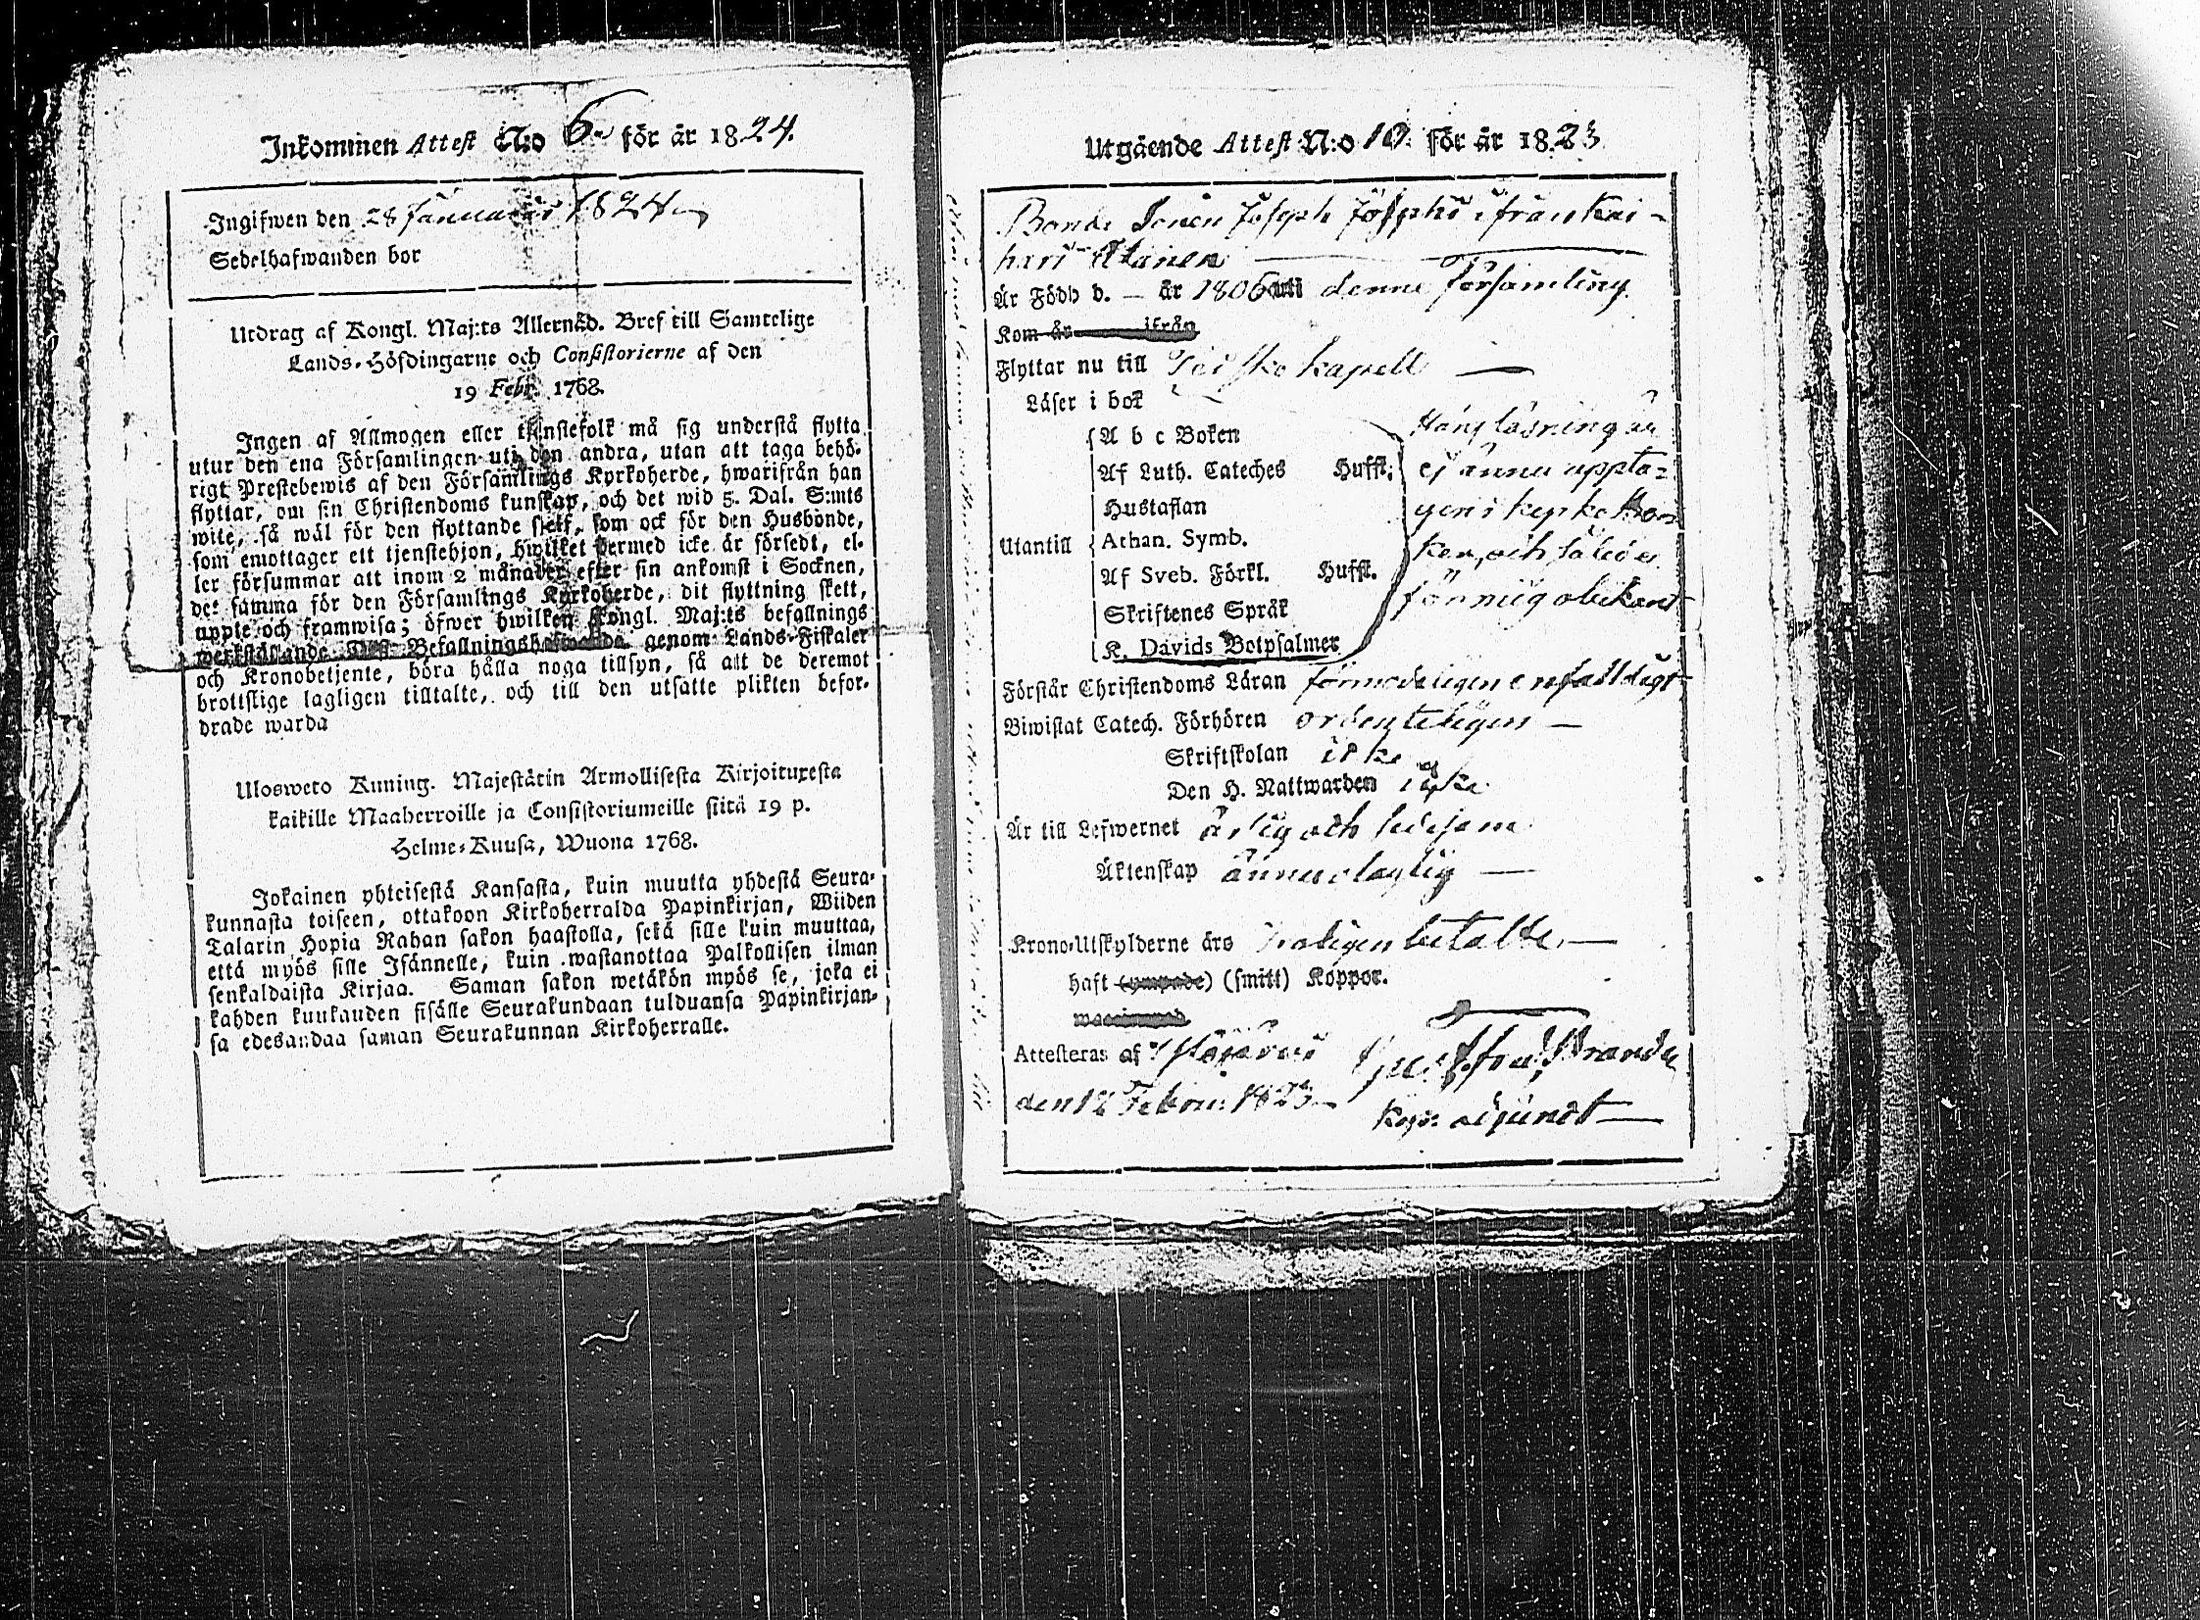 Inkommen Attest N:o 6 för år 1824.
Ingifwen den 28 Januarii 1824
Sedelhafwanden bor
Utdrag af Kongl. Maj:ts Allernåd. Bref till Samtelige
Lands-Höfdingarne och Consistorierne af den
19 Febr. 1768.
Ingen af Allmogen eller tjenstefolk må sig understå flytta
utur den ena Församlingen uti den andra, utan att taga behö-
rigt Prestebewis af den Församlings Kyrkoherde, hwarifrån han
flyttar, om sin Christendoms kunskap, och det wid 5. Dal. S:mts
wite, så wäl för den flyttande sjelf, som ock för den Husbonde,
som emottager ett tjenstehjon, hwilket dermed icke är försedt, el-
ler försummar att inom 2 månader efter sin ankomst i Socknen,
det samma för den Församlings Kyrkoherde, dit flyttning skett,
uppte och framwisa; öfwer hwilken Kongl. Maj:ts befallnings
werkställande Dess Befallningshafwande genom Lands-Fiskaler
och Kronobetjente, böra hålla noga tillsyn, så att de deremot
brottslige lagligen tilltalte, och till den utsatte plikten befor-
drade warda
Ulosweto Kuning. Majestätin Armollisesta Kirjoituxesta
kaikille Maaherroille ja Consistoriumeille siitä 19 p.
Helme-Kuusa, Wuona 1768.
Jokainen yhteisestä Kansasta, kuin muutta yhdestä Seura-
kunnasta toiseen, ottakoon Kirkoherralda Papinkirjan, Wiiden
Talarin Hopia Rahan sakon haastolla, sekä sille kuin muuttaa,
että myös sille Isännelle, kuin wastanottaa Palkollisen ilman
senkaldaista Kirjaa. Saman sakon wetäkön myös se, joka ei
kahden kuukauden sisälle Seurakundaan tulduansa Papinkirjan-
sa edesandaa saman Seurakunnan Kirkoherralle.
Utgående Attest N:o 10 för år 1823
Bonde Sonen Joseph Josephs ifrån Kai-
hari
Är Född d. — år 1806 uti denne Församling
Kom år ifrån
Flyttar nu till kapell
Läser i bok
A b c Boken
Af Luth. Cateches Hufst.
Hustaflan
Utantill Athan. Symb.
Af Sveb. Förkl. Hufst.
Skriftenes Språk
K. Davids Botpsalmer
Hans läsning är
ej ännu uppta-
gen i kyrko Bo
ken, och således
för mig obekant
Förstår Christendoms Läran förmodeligen enfalldigt
Biwistat Catech. Förhören ordenteligen —
Skriftskolan icke
Den H. Nattwarden icke
Är till Lefwernet ärlig och
Äktenskap ännu olaglig —
Krono-Utskylderne äro betalte —
haft (ympade) (smitt) Koppor.
Attesteras af
den 12 Febru: 1823
adjunct —